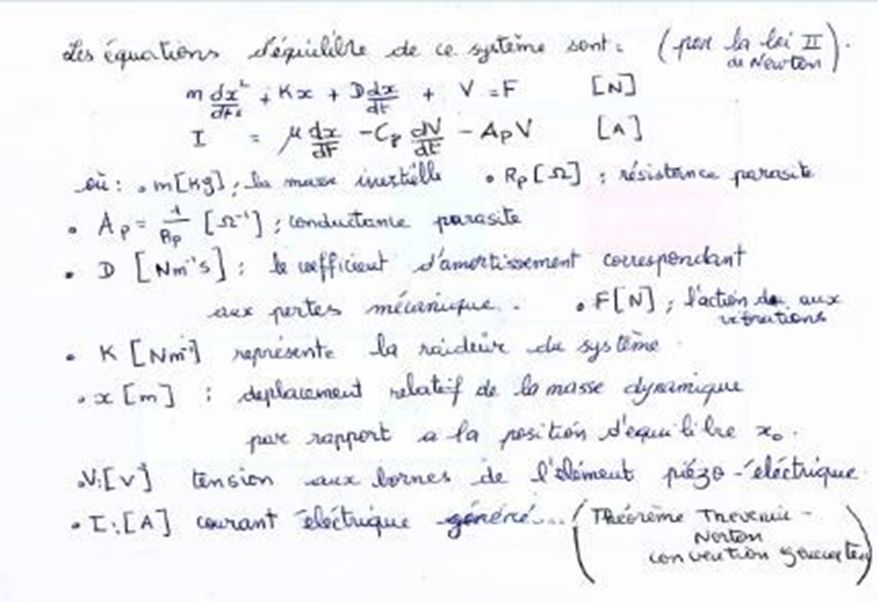 Les équations d'équilibre de ce système sont : (par la loi II de Newton).
m dx²/dt² + Kx + D dx/dt + V = F [N]
I = μ dx/dt - Cp dV/dt - Ap V [A]
où : • m [Kg] ; la masse inertielle • Rp [Ω] ; résistance parasite
• Ap = 1/Rp [Ω⁻¹] ; conductance parasite
• D [Nm⁻¹s] : le coefficient d'amortissement correspondant
aux pertes mécanique. • F [N] ; l'action aux vibrations
• K [Nm⁻¹] représente la raideur du système
• x [m] : deplacement relatif de la masse dynamique
par rapport a la position d'équilibre x₀.
• V: [V] tension aux bornes de l'élément piézo-électrique
• I: [A] courant électrique généré... (Théorème Thevenin -
Norton
convention)